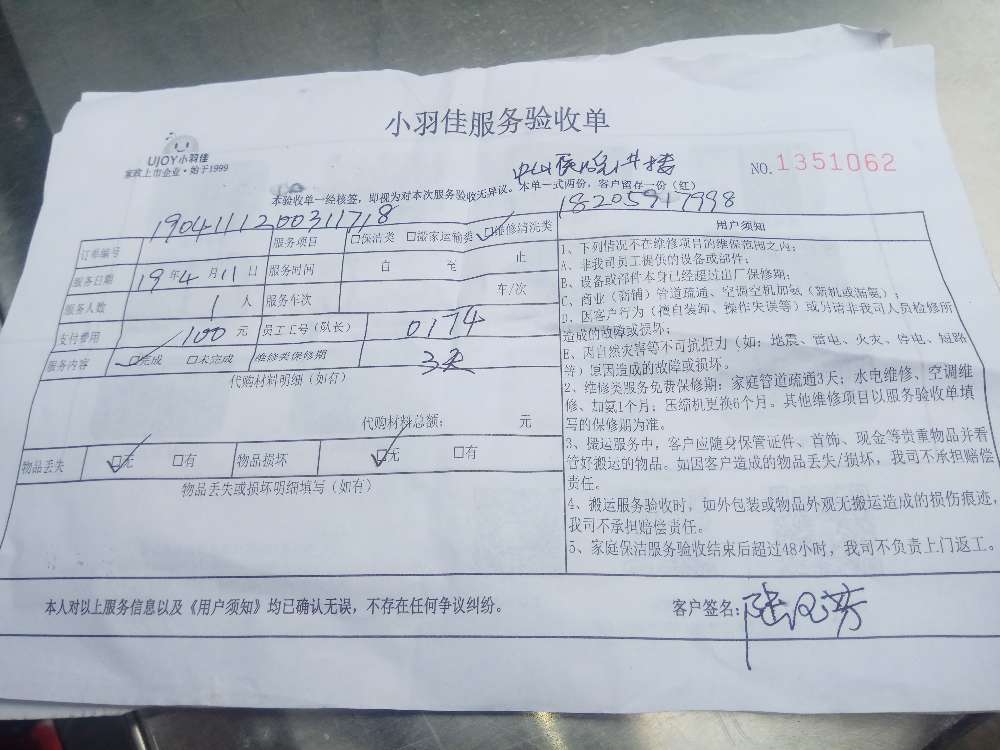 小羽佳服务验收单
UJOY小羽佳
家政上市企业·始于1999
NO.1351062
本验收单一经核签，即视为对本次服务验收无异议。本单一式两份，客户留存一份（红）
18205917998
订单编号 1904111200311718 服务项目 □保洁类 □搬家运输类 ☑维修清洗类
服务日期 19年4月11日 服务时间 自 至 止
服务人数 1人 服务车次 车/次
支付费用 100元 员工工号(队长) 0174
服务内容 ☑完成 □未完成 维修类保修期 3天
代购材料明细（如有）
代购材料总额： 元
物品丢失 ☑无 □有 物品损坏 ☑无 □有
物品丢失或损坏明细填写（如有）
用户须知
1、下列情况不在维修项目的维保范围之内：
A、非我司员工提供的设备或部件；
B、设备或部件本身已经超过出厂保修期；
C、商业（商铺）管道疏通、空调空机加氨（漏机或漏氨）；
D、因客户行为（擅自装卸、操作失误等）或另请非我司人员检修所
造成的故障或损坏；
E、因自然灾害等不可抗拒力（如：地震、雷电、火灾、停电、短路
等）原因造成的故障或损坏。
2、维修类服务免费保修期：家庭管道疏通3天；水电维修、空调维
修、加氨1个月；压缩机更换6个月。其他维修项目以服务验收单填
写的保修期为准。
3、搬运服务中，客户应随身保管证件、首饰、现金等贵重物品并看
管好搬运的物品。如因客户造成的物品丢失/损坏，我司不承担赔偿
责任。
4、搬运服务验收时，如外包装或物品外观无搬运造成的损伤痕迹，
我司不承担赔偿责任。
5、家庭保洁服务验收结束后超过48小时，我司不负责上门返工。
本人对以上服务信息以及《用户须知》均已确认无误，不存在任何争议纠纷。
客户签名：